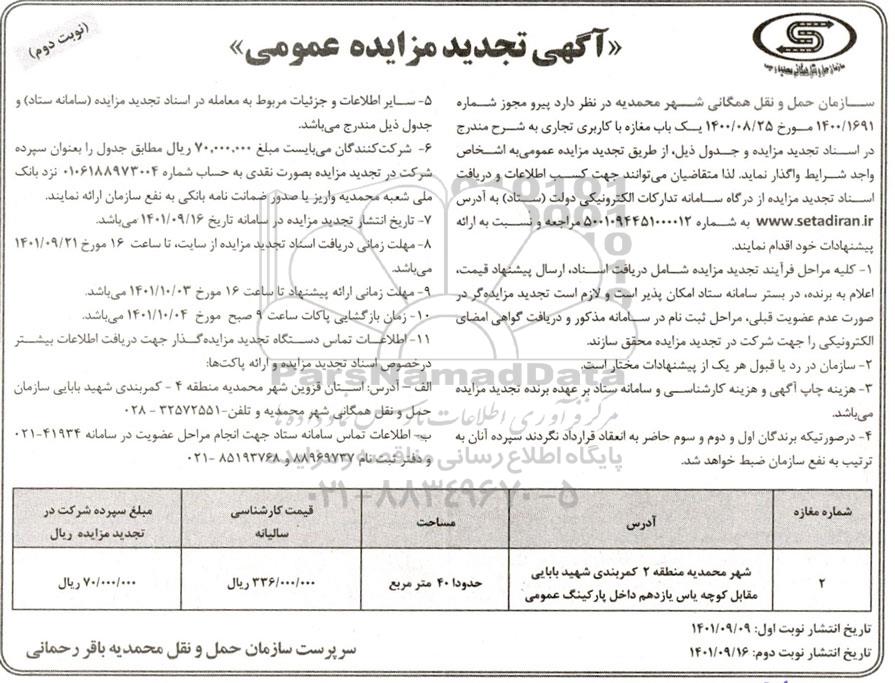 (نوبت دوم)
«آگهی تجدید مزایده عمومی»
سازمان حمل و نقل همگانی شهر محمدیه در نظر دارد پیرو مجوز شماره
۱۴۰۰/۱۶۹۱ مورخ ۱۴۰۰/۰۸/۲۵ یک باب مغازه با کاربری تجاری به شرح مندرج
در اسناد تجدید مزایده و جدول ذیل، از طریق تجدید مزایده عمومی به اشخاص
واجد شرایط واگذار نماید. لذا متقاضیان می‌توانند جهت کسب اطلاعات و دریافت
اسناد تجدید مزایده از درگاه سامانه تدارکات الکترونیکی دولت (ستاد) به آدرس
www.setadiran.ir به شماره ۵۰۰۱۰۹۴۴۵۱۰۰۰۰۱۲ مراجعه و نسبت به ارائه
پیشنهادات خود اقدام نمایند.
۱- کلیه مراحل فرآیند تجدید مزایده شامل دریافت اسناد، ارسال پیشنهاد قیمت،
اعلام به برنده، در بستر سامانه ستاد امکان پذیر است و لازم است تجدید مزایده‌گر در
صورت عدم عضویت قبلی، مراحل ثبت نام در سامانه مذکور و دریافت گواهی امضای
الکترونیکی را جهت شرکت در تجدید مزایده محقق سازند.
۲- سازمان در رد یا قبول هر یک از پیشنهادات مختار است.
۳- هزینه چاپ آگهی و هزینه کارشناسی و سامانه ستاد بر عهده برنده تجدید مزایده
می‌باشد.
۴- درصورتیکه برندگان اول و دوم و سوم حاضر به انعقاد قرارداد نگردند سپرده آنان به
ترتیب به نفع سازمان ضبط خواهد شد.
۵- سایر اطلاعات و جزئیات مربوط به معامله در اسناد تجدید مزایده (سامانه ستاد) و
جدول ذیل مندرج می‌باشد.
۶- شرکت‌کنندگان می‌بایست مبلغ ۷۰,۰۰۰,۰۰۰ ریال مطابق جدول را بعنوان سپرده
شرکت در تجدید مزایده بصورت نقدی به حساب شماره ۰۱۰۶۱۸۸۹۷۳۰۰۴ نزد بانک
ملی شعبه محمدیه واریز یا صدور ضمانت نامه بانکی به نفع سازمان ارائه نمایند.
۷- تاریخ انتشار تجدید مزایده در سامانه تاریخ ۱۴۰۱/۰۹/۱۶ می‌باشد.
۸- مهلت زمانی دریافت اسناد تجدید مزایده از سایت، تا ساعت ۱۶ مورخ ۱۴۰۱/۰۹/۲۱
می‌باشد.
۹- مهلت زمانی ارائه پیشنهاد تا ساعت ۱۶ مورخ ۱۴۰۱/۱۰/۰۳ می‌باشد.
۱۰- زمان بازگشایی پاکات ساعت ۹ صبح مورخ ۱۴۰۱/۱۰/۰۴ می‌باشد.
۱۱- اطلاعات تماس دستگاه تجدید مزایده‌گذار جهت دریافت اطلاعات بیشتر
درخصوص اسناد تجدید مزایده و ارائه پاکت‌ها:
الف - آدرس: استان قزوین شهر محمدیه منطقه ۴ - کمربندی شهید بابایی سازمان
حمل و نقل همگانی شهر محمدیه و تلفن- ۳۲۵۷۲۵۵۱ - ۰۲۸
ب- اطلاعات تماس سامانه ستاد جهت انجام مراحل عضویت در سامانه ۴۱۹۳۴-۰۲۱
و دفتر ثبت نام ۸۸۹۶۹۷۳۷ و ۸۵۱۹۳۷۶۸ -۰۲۱
ParsNamadData
مرکز فرآوری اطلاعات پارس نماد داده ها
پایگاه اطلاع رسانی مناقصه و مزایده
۰۲۱-۸۸۳۴۹۶۷۰-۵
شماره مغازه | آدرس | مساحت | قیمت کارشناسی سالیانه | مبلغ سپرده شرکت در تجدید مزایده ریال
۲ | شهر محمدیه منطقه ۲ کمربندی شهید بابایی مقابل کوچه یاس یازدهم داخل پارکینگ عمومی | حدودا ۴۰ متر مربع | ۳۳۶/۰۰۰/۰۰۰ ریال | ۷۰/۰۰۰/۰۰۰ ریال
تاریخ انتشار نوبت اول: ۱۴۰۱/۰۹/۰۹
تاریخ انتشار نوبت دوم: ۱۴۰۱/۰۹/۱۶
سرپرست سازمان حمل و نقل محمدیه باقر رحمانی